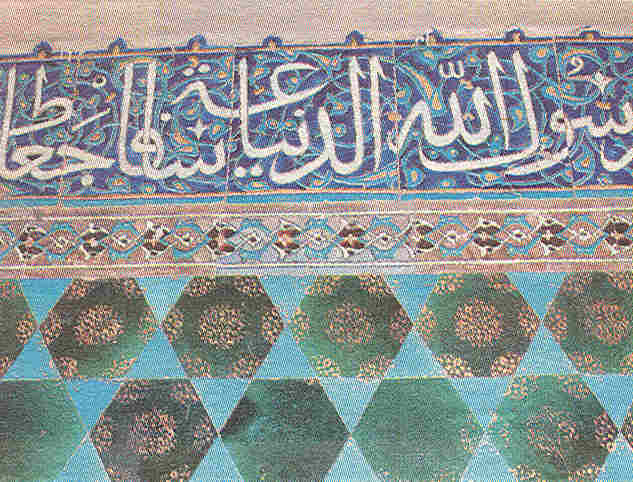 رسول الله الدنيا ساعة فاجعلها